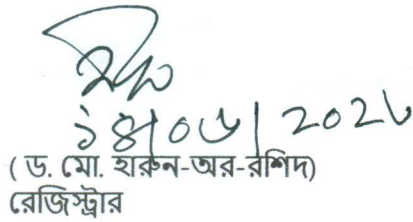 ১৪|০৬|২০২৬
( ড. মো. হারুন-অর-রশিদ)
রেজিস্ট্রার